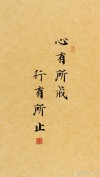 心有所戒
行有所止